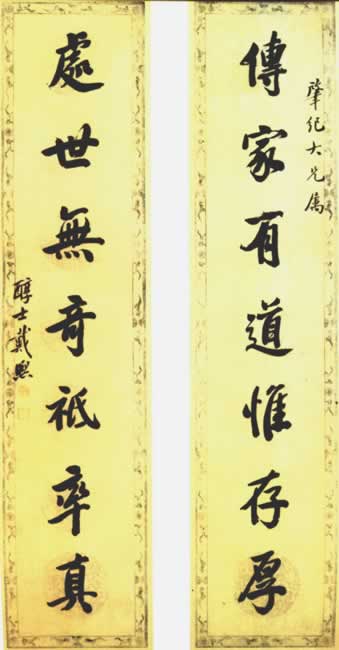 肇紀大兄屬
傳家有道惟存厚
處世無奇祗率真
醇士戴熙